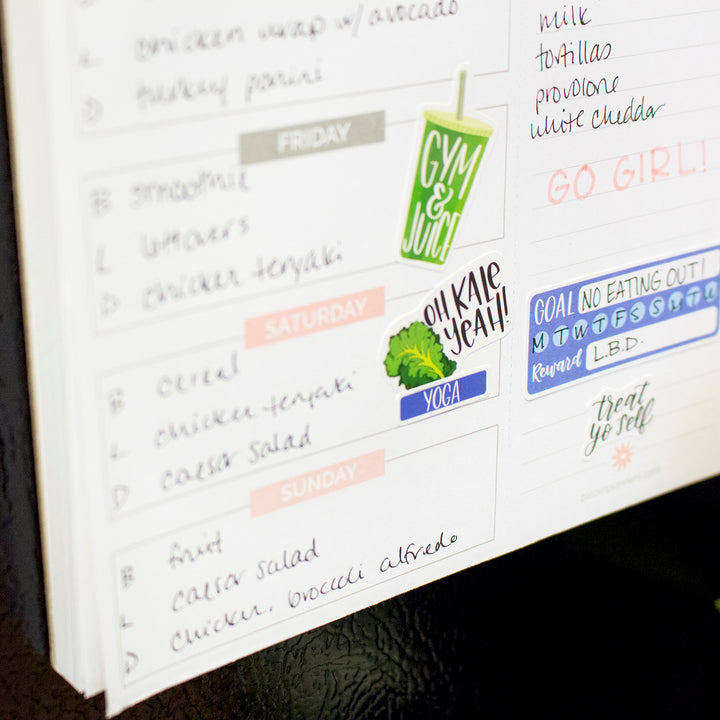 L chicken wrap w/ avocado
D turkey panini
FRIDAY
B smoothie
L leftovers
D chicken teryaki
SATURDAY
B cereal
L chicken teryaki
D caesar salad
SUNDAY
B fruit
L caesar salad
D chicken. broccoli alfredo
GYM
&
JUICE
OH KALE
YEAH!
YOGA
milk
tortillas
provolone
white cheddar
GO GIRL!
GOAL NO EATING OUT!
M T W T F S S M T
Reward L.B.D.
treat
yo self
bloomplanners.com